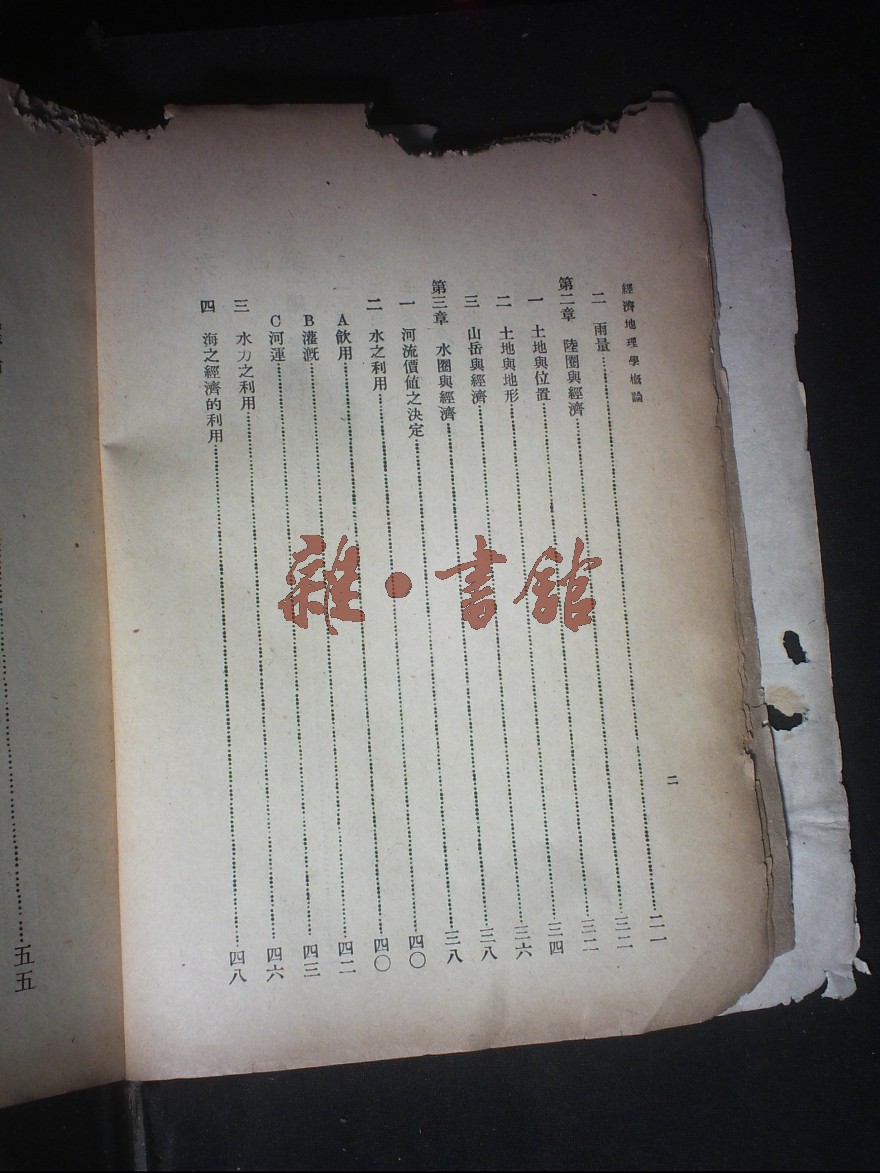 經濟地理學概論
二
二 雨量……二一
第二章 陸圈與經濟……三二
一 土地與位置……三二
二 土地與地形……三四
三 山岳與經濟……三六
第三章 水圈與經濟……三八
一 河流價值之決定……三八
二 水之利用……四〇
A飲用……四〇
B灌漑……四二
C河運……四三
三 水力之利用……四六
四 海之經濟的利用……四八
五五
雜·書館